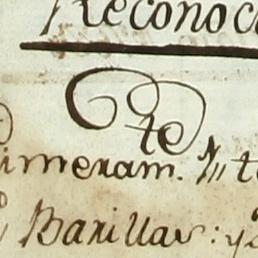 Reconoc
te
imeram.
Barillas: y